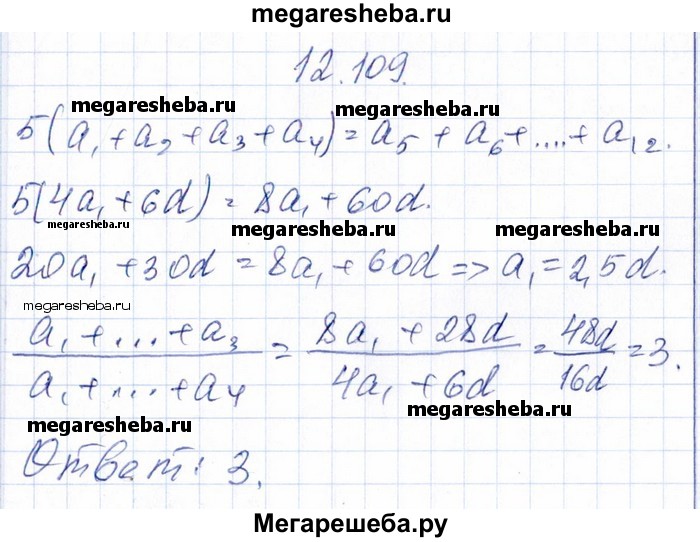 megaresheba.ru
12.109.
megaresheba.ru megaresheba.ru
5(a₁+a₂+a₃+a₄)=a₅+a₆+....+a₁₂.
5(4a₁+6d)=8a₁+60d.
megaresheba.ru megaresheba.ru megaresheba.ru
20a₁+30d=8a₁+60d=>a₁=2,5d.
megaresheba.ru
(a₁+...+a₃)/(a₁+...+a₄)=(8a₁+28d)/(4a₁+6d)=48d/16d=3.
megaresheba.ru megaresheba.ru
Ответ: 3.
Мегарешеба.ру